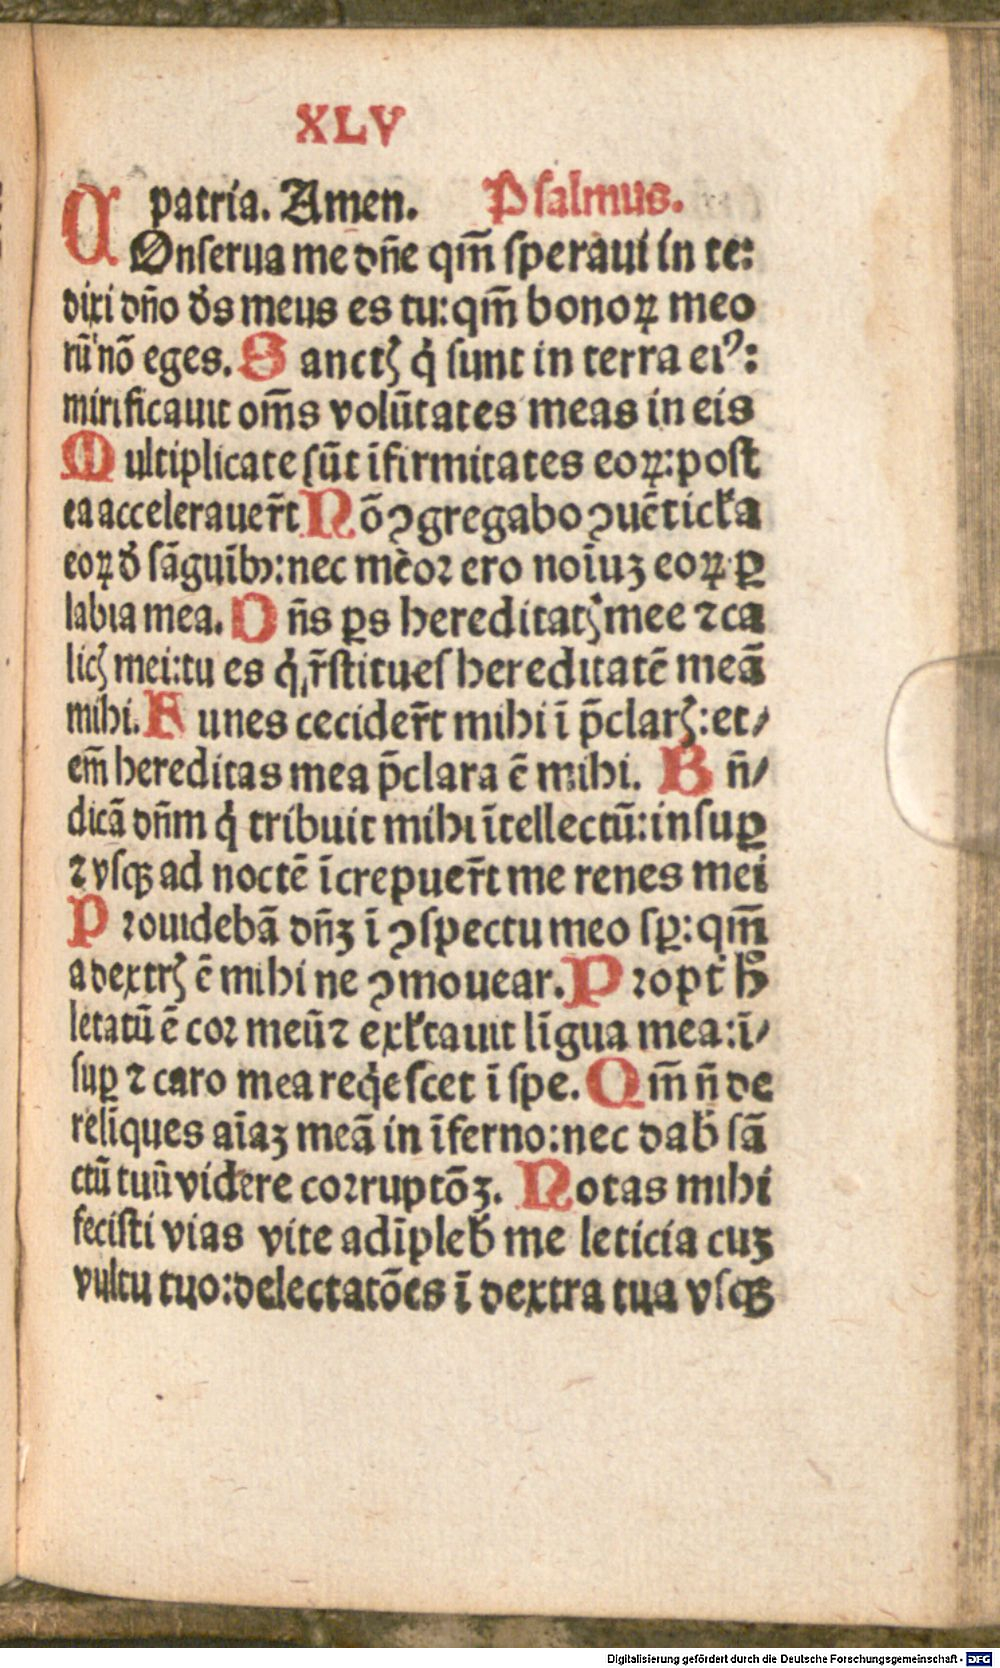 XLV
patria. Amen. Psalmus.
COnserua me dn̄e qm̄ speraui in te:
dixi dn̄o ds̄ meus es tu: qm̄ bonoꝝ meo
rū nō eges. Sanctꝭ q̇ sunt in terra eiꝰ:
mirificauit om̄s volūtates meas in eis
Multiplicate sūt īfirmitates eoꝝ: post
ea accelerauer̄t Nō ꝯgregabo ꝯuēticl̄a
eoꝝ d̄ sāguībꝫ: nec mēor ero noīuꝫ eoꝝ ꝑ
labia mea. Dn̄s ꝑs hereditatꝭ mee ⁊ ca
licꝭ mei: tu es q̇ r̄stitues hereditatē meā
mihi. Funes cecider̄t mihi ī p̄clarꝭ: et⸗
em̄ hereditas mea p̄clara ē mihi. Bn̄⸗
dicā dn̄m q̇ tribuit mihi ītellectū: insuꝑ
⁊ vsqꝫ ad noctē īcrepuer̄t me renes mei
Prouidebā dn̄ꝫ ī ꝯspectu meo sꝑ: qm̄
a dextrꝭ ē mihi ne ꝯmouear. Propt̄ h̄
letatū ē cor meū ⁊ exl̄tauit līgua mea: ī⸗
suꝑ ⁊ caro mea reqͥescet ī spe. Qm̄ n̄ de
relīques aīaꝫ meā in īferno: nec dab̄ sā
ctū tuū videre corruptōꝫ. Notas mihi
fecisti vias vite adīpleb̄ me leticia cuꝫ
vultu tuo: delectatōes ī dextra tua vsqꝫ
Digitalisierung gefördert durch die Deutsche Forschungsgemeinschaft - DFG